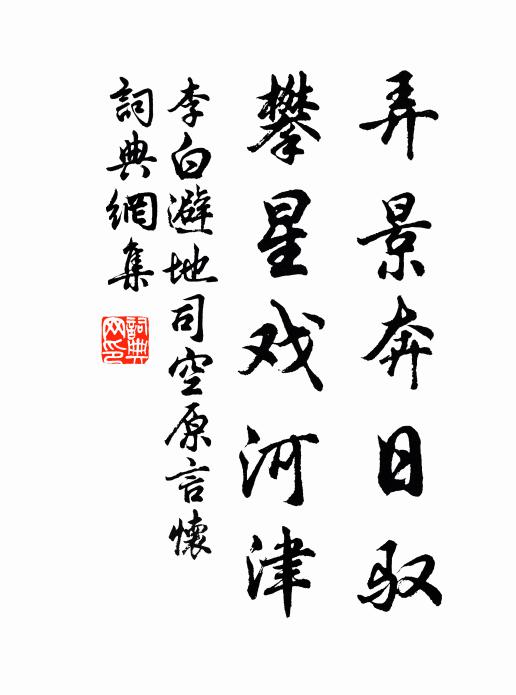 弄景奔日驭
攀星戏河津
李白避地司空原言懷
詞典網集
詞典网印